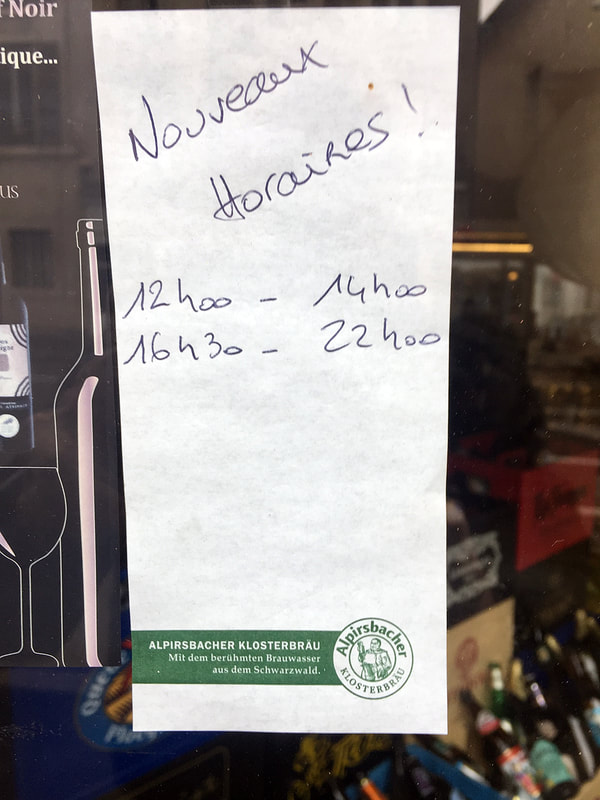 Noir
ique...
us
Nouveaux
Horaires !
12h00 - 14h00
16h30 - 22h00
ALPIRSBACHER KLOSTERBRÄU
Mit dem berühmten Brauwasser
aus dem Schwarzwald.
Alpirsbacher
KLOSTERBRÄU